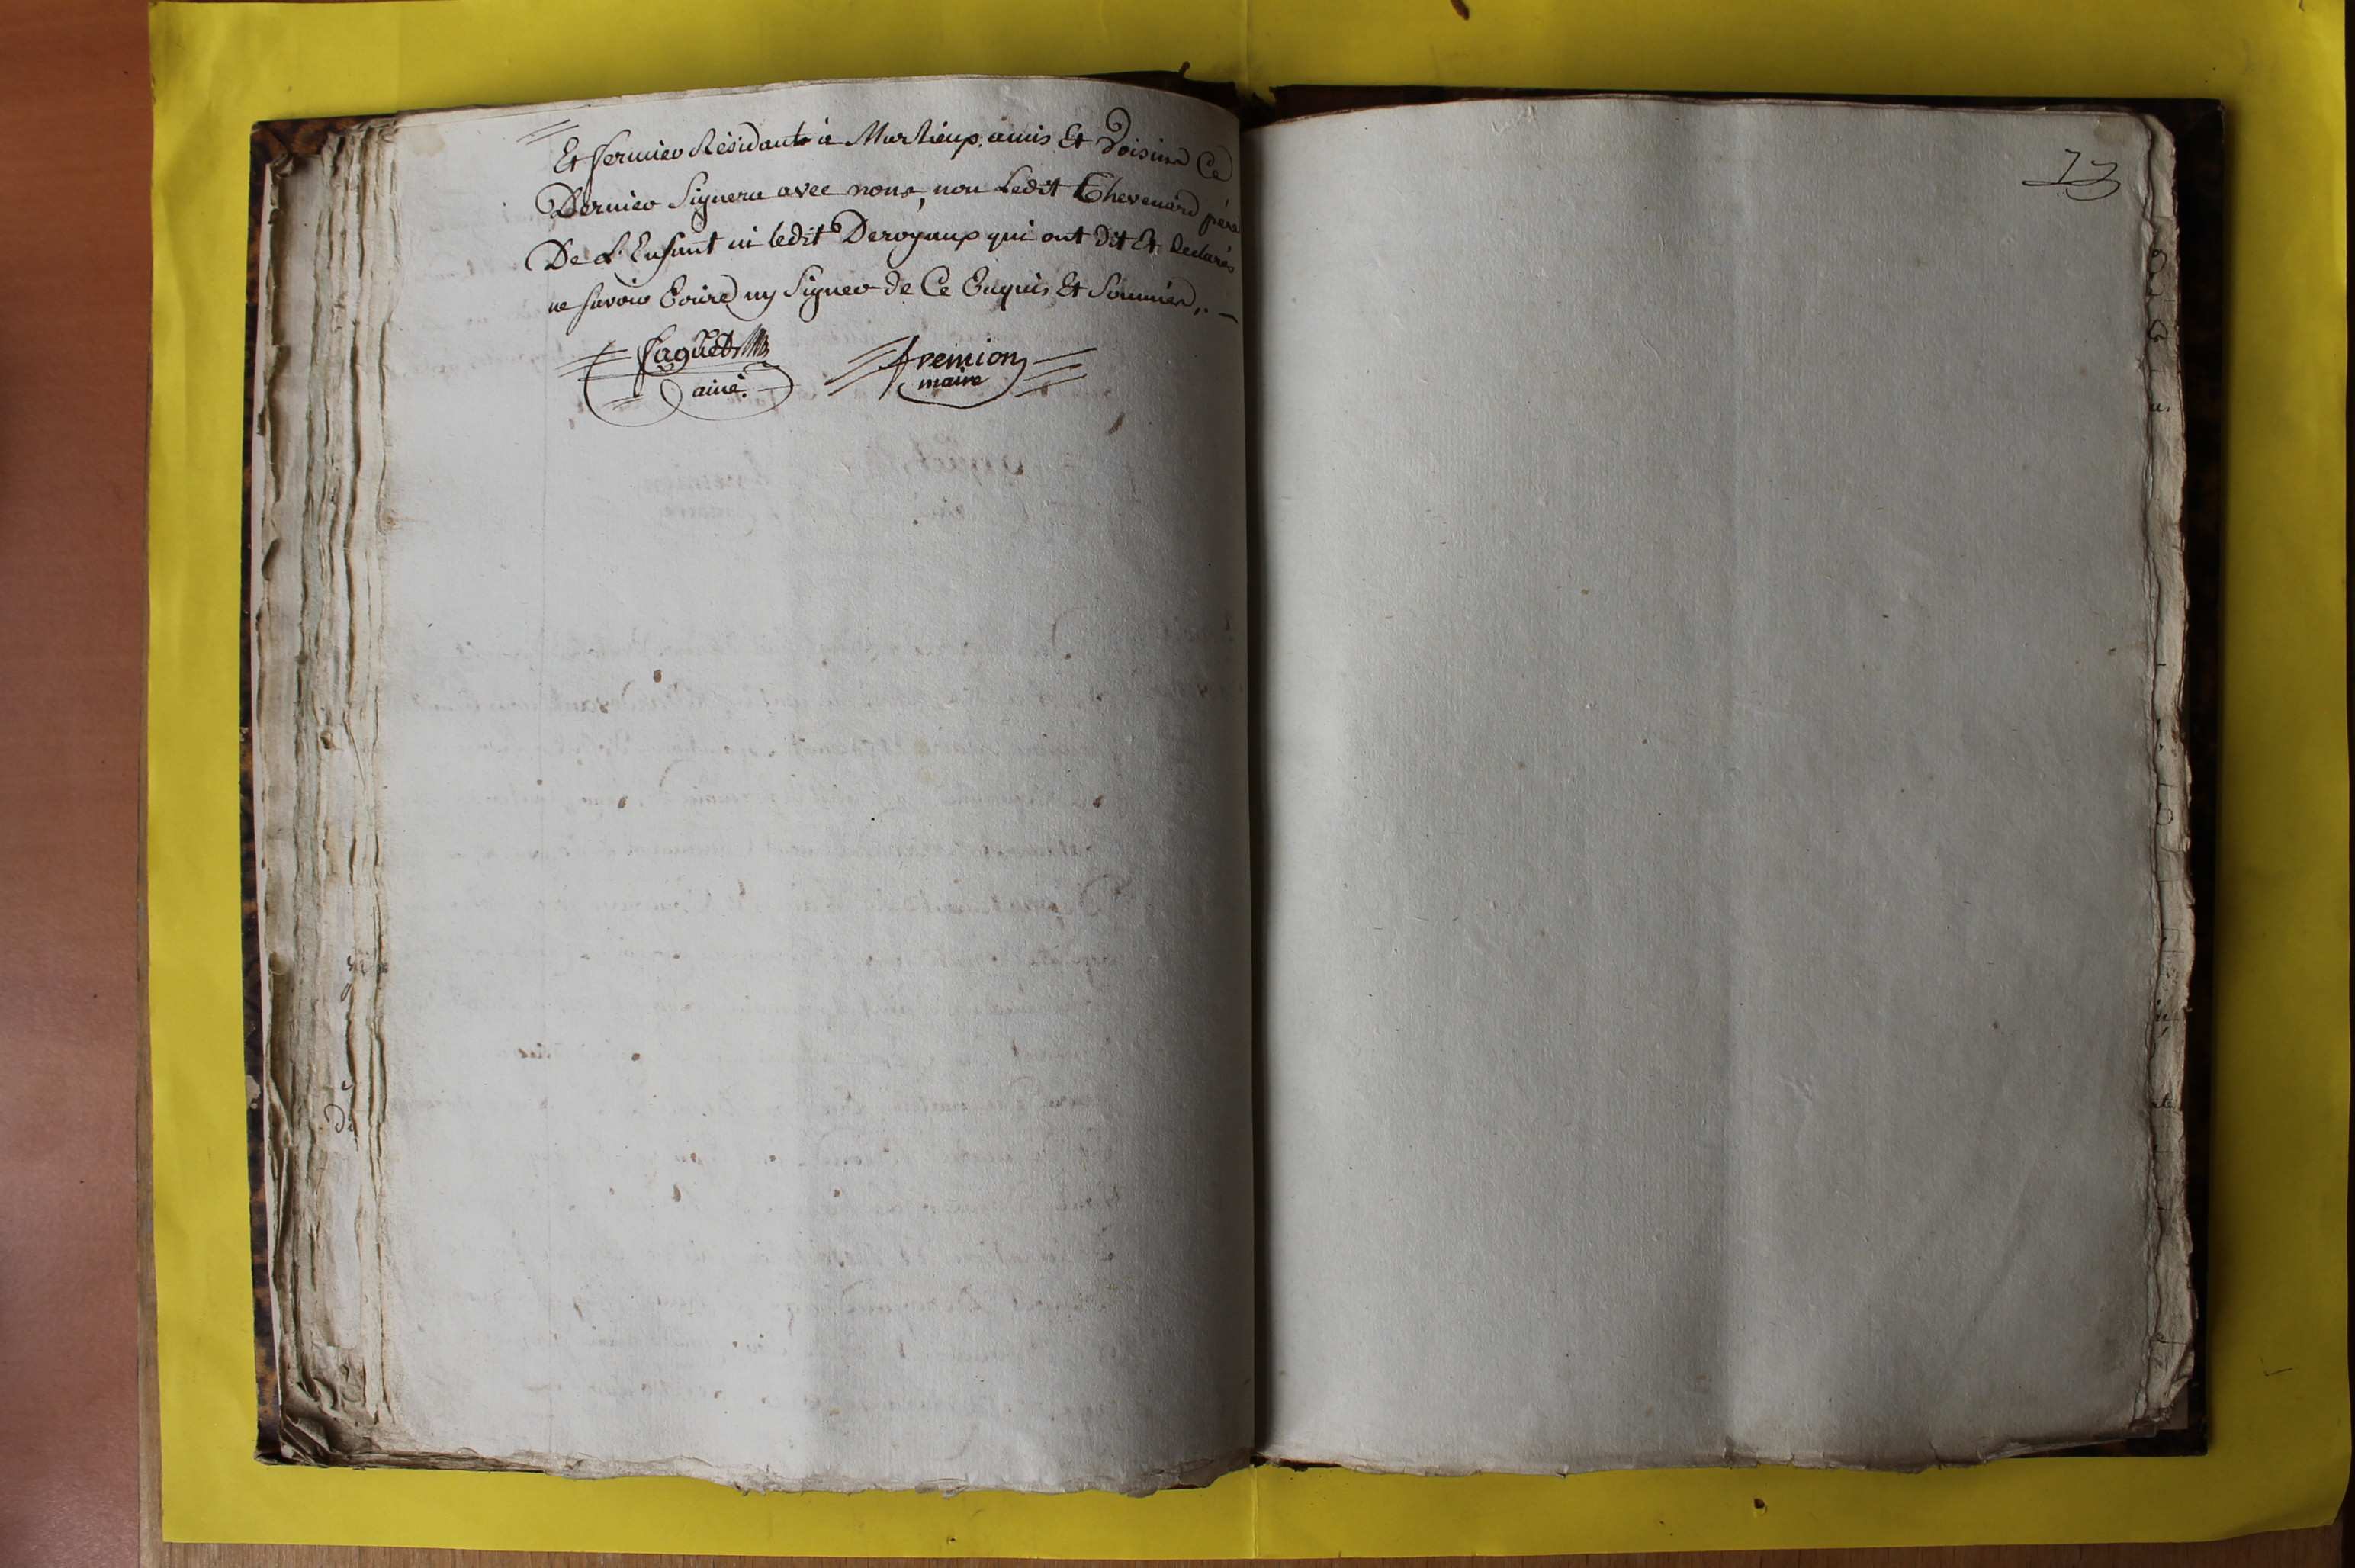 Et fermier Résidants à Marlieux, amis Et Voisins Ce
Dernier Signera avec nous, non Ledit Chevenard père
De L'Enfant ni ledit Deroyaux qui ont dit Et déclarés
ne savoir Ecrire ny Signer de Ce Enquis Et Sommés,. —
Faguet fremion
ainé. maire
77